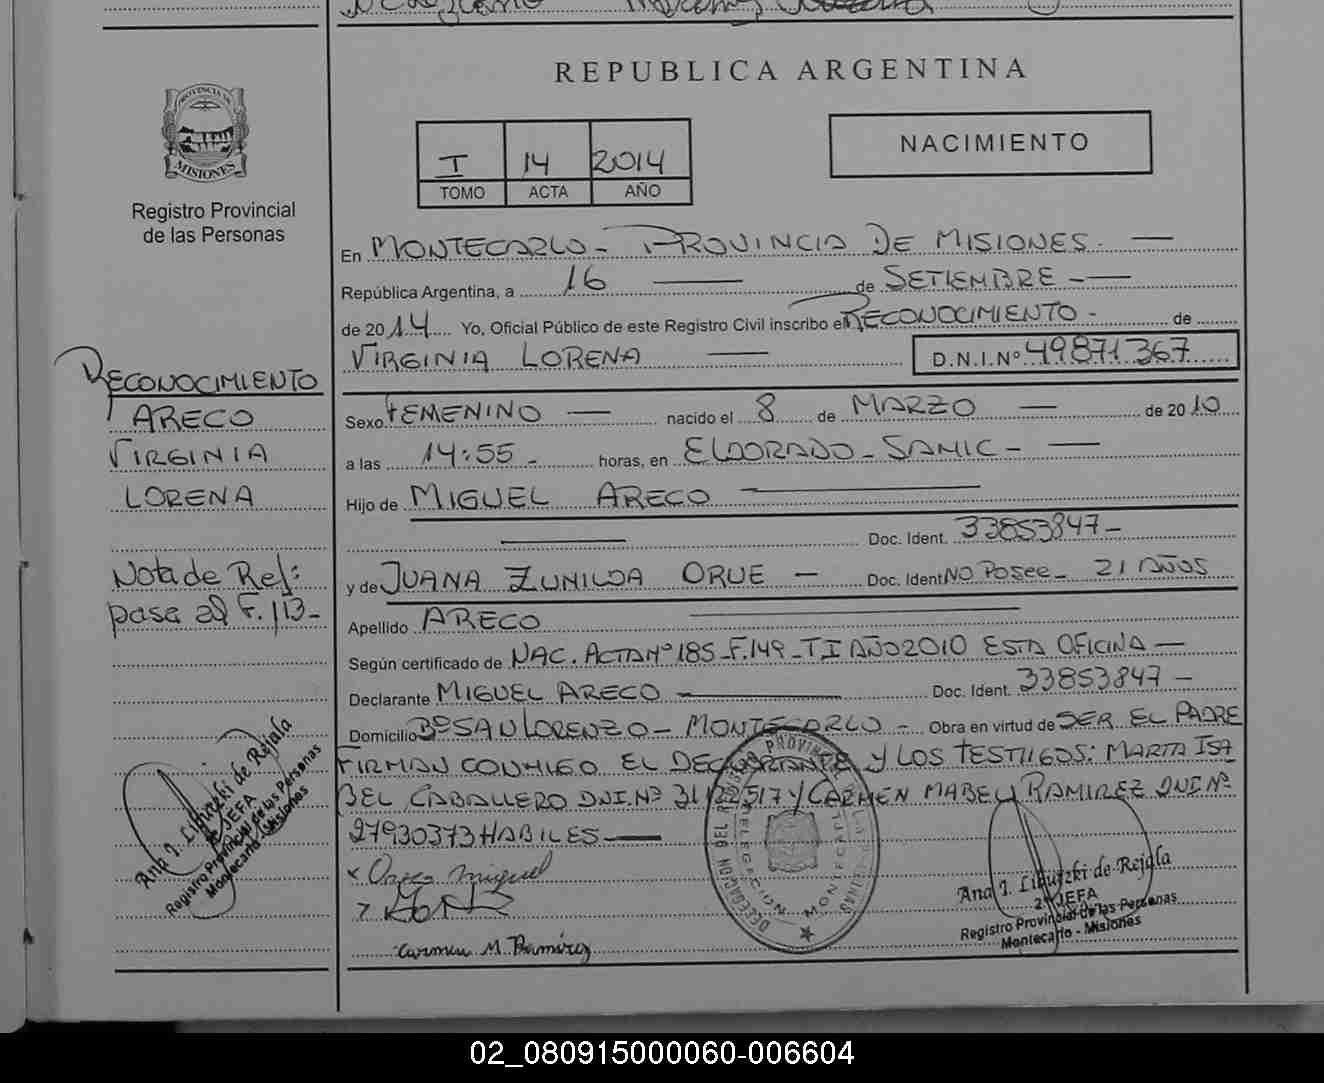 REPUBLICA ARGENTINA
PROVINCIA DE
MISIONES
Registro Provincial
de las Personas
I 14 2014
TOMO ACTA AÑO
NACIMIENTO
En MONTECARLO - PROVINCIA DE MISIONES. —
República Argentina, a 16 — de SETIEMBRE - —
de 2014 Yo, Oficial Público de este Registro Civil inscribo el RECONOCIMIENTO - de
VIRGINIA LORENA — D.N.I.Nº 49.871.367
RECONOCIMIENTO
ARECO
VIRGINIA
LORENA
Nota de Ref:
pasa al F. 113-
Sexo FEMENINO — nacido el 8 de MARZO — de 2010
a las 14:55 - horas, en ELDORADO - SAMIC - —
Hijo de MIGUEL ARECO —
— Doc. Ident. 33853847 -
y de JUANA ZUNILDA ORUE — Doc. Ident NO POSEE - 21 AÑOS
Apellido ARECO —
Según certificado de NAC. ACTA Nº 185 - F.149 - T I AÑO 2010 ESTA OFICINA —
Declarante MIGUEL ARECO — Doc. Ident. 33853847 -
Domicilio Bº SAN LORENZO - MONTECARLO - Obra en virtud de SER EL PADRE
FIRMAN CONMIGO EL DECLARANTE Y LOS TESTIGOS: MARTA ISA
BEL CABALLERO DNI.Nº 31122517 Y CARMEN MABEL RAMIREZ DNI Nº
27930373 HABILES —
miguel
Carmen M. Ramírez
DELEGACION MONTECARLO
Ana I. Libutzki de Rejala
2º JEFA
Registro Provincial de las Personas
Montecarlo - Misiones
Ana I. Libutzki de Rejala
2º JEFA
Registro Provincial de las Personas
Montecarlo - Misiones
02_080915000060-006604